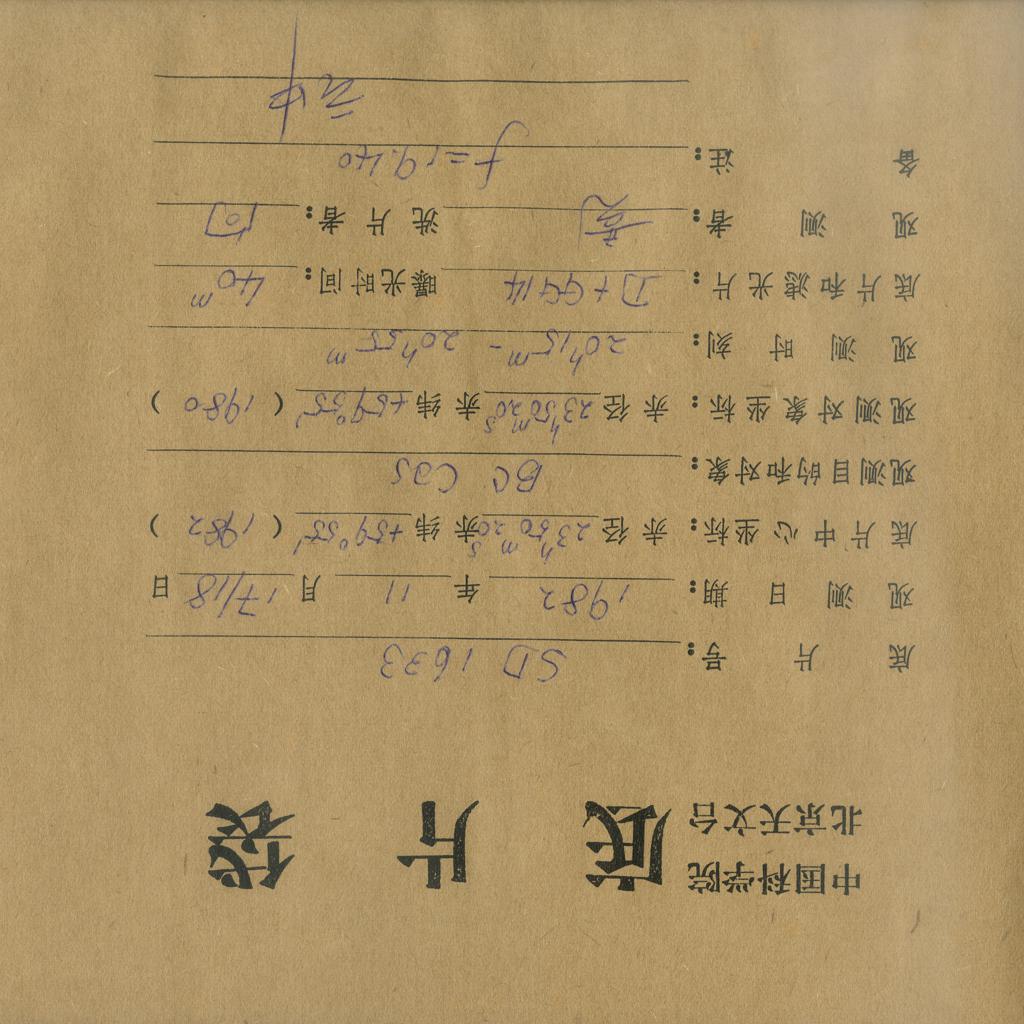 中国科学院
北京天文台
底片袋
底片号：SD 1633
观测日期：1982年11月17/18日
底片中心坐标：赤径23ʰ50ᵐ20ˢ赤纬+59°55′（1982）
观测目的和对象：BC Cas
观测对象坐标：赤径23ʰ50ᵐ20ˢ赤纬+59°55′（1980）
观测时刻：20ʰ15ᵐ - 20ʰ55ᵐ
底片和滤光片：D+GG14 曝光时间：40ᵐ
观测者： 洗片者：
备注：f=19.40